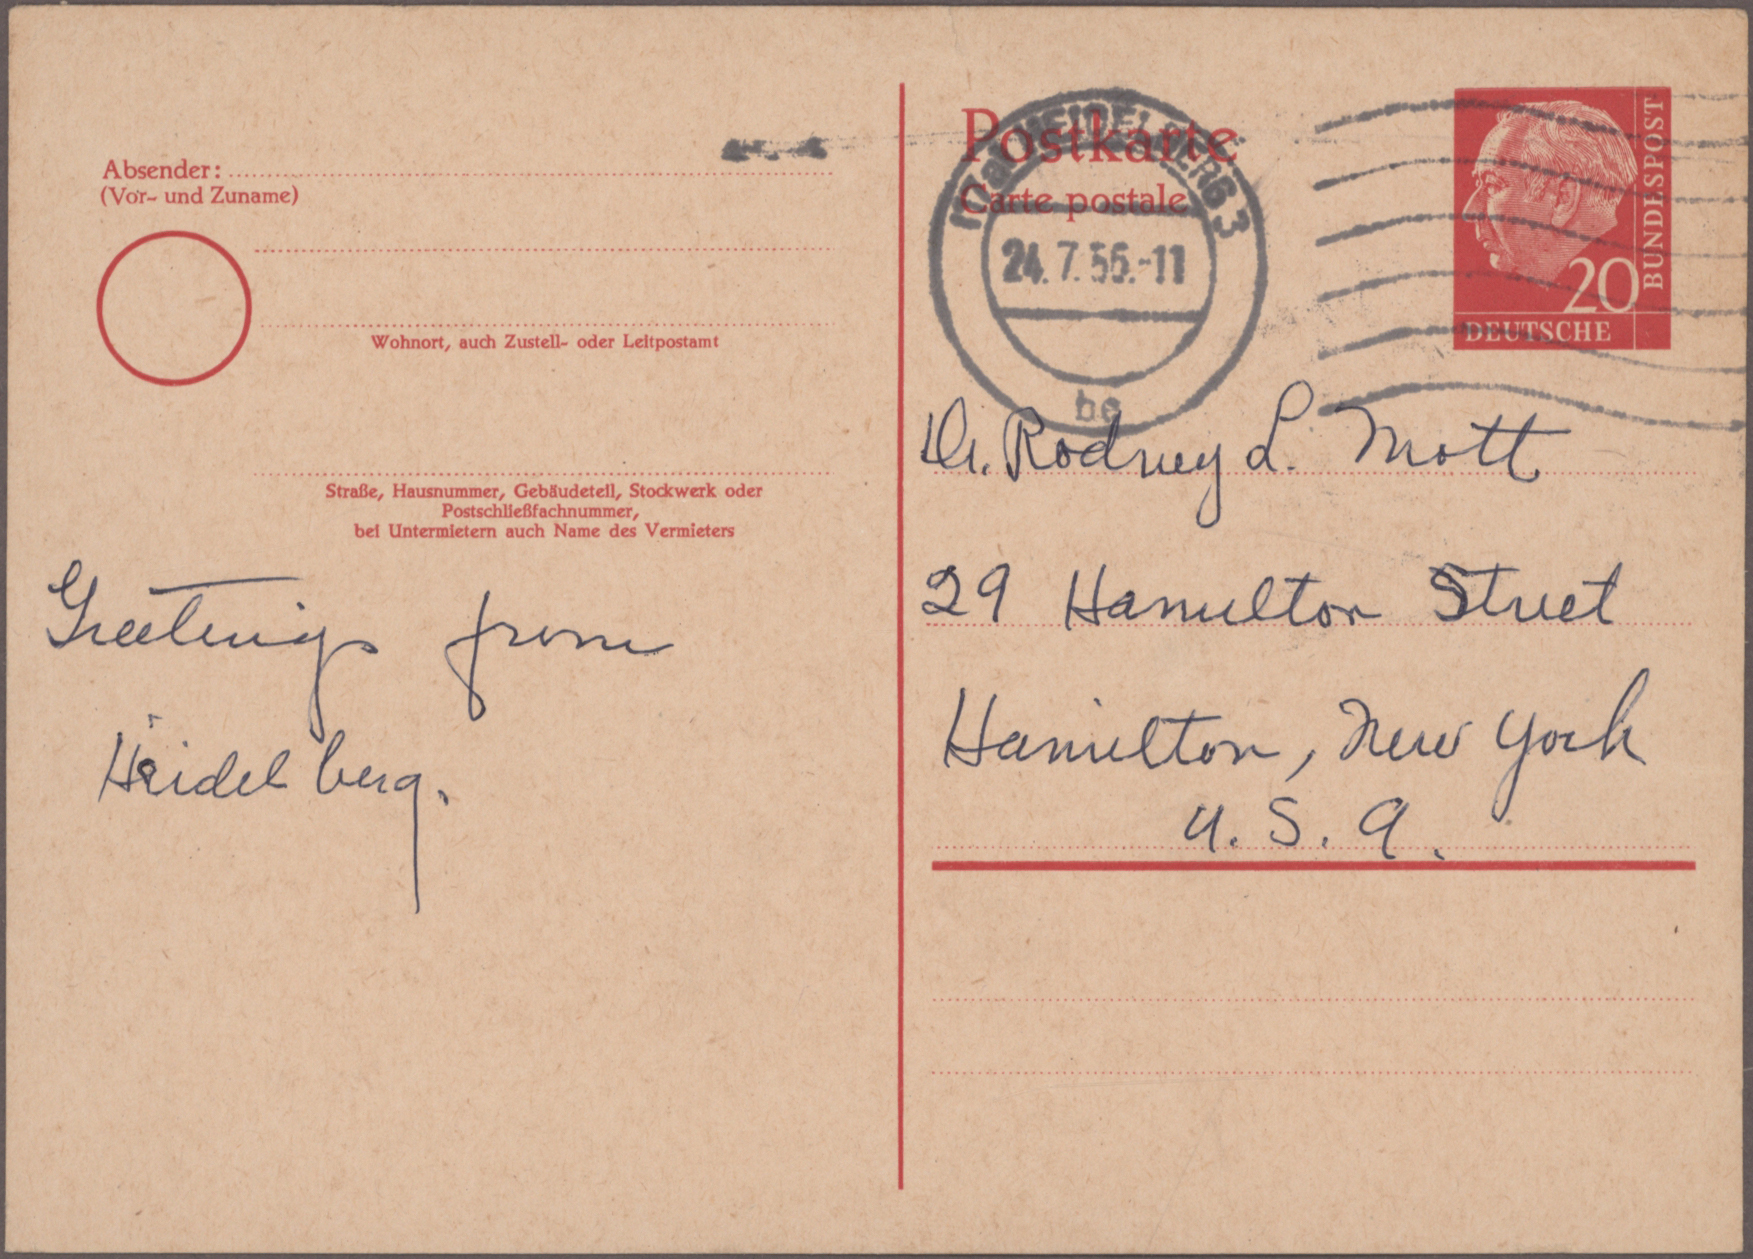 Absender:
(Vor- und Zuname)
Wohnort, auch Zustell- oder Leitpostamt
Straße, Hausnummer, Gebäudeteil, Stockwerk oder
Postschließfachnummer,
bei Untermietern auch Name des Vermieters
Greetings from
Heidelberg.
Postkarte
Carte postale
(17a) HEIDELBERG 3
24.7.56.-11
be
20
DEUTSCHE
BUNDESPOST
Dr. Rodney L. Mott
29 Hamilton Street
Hamilton, New York
U. S. A.